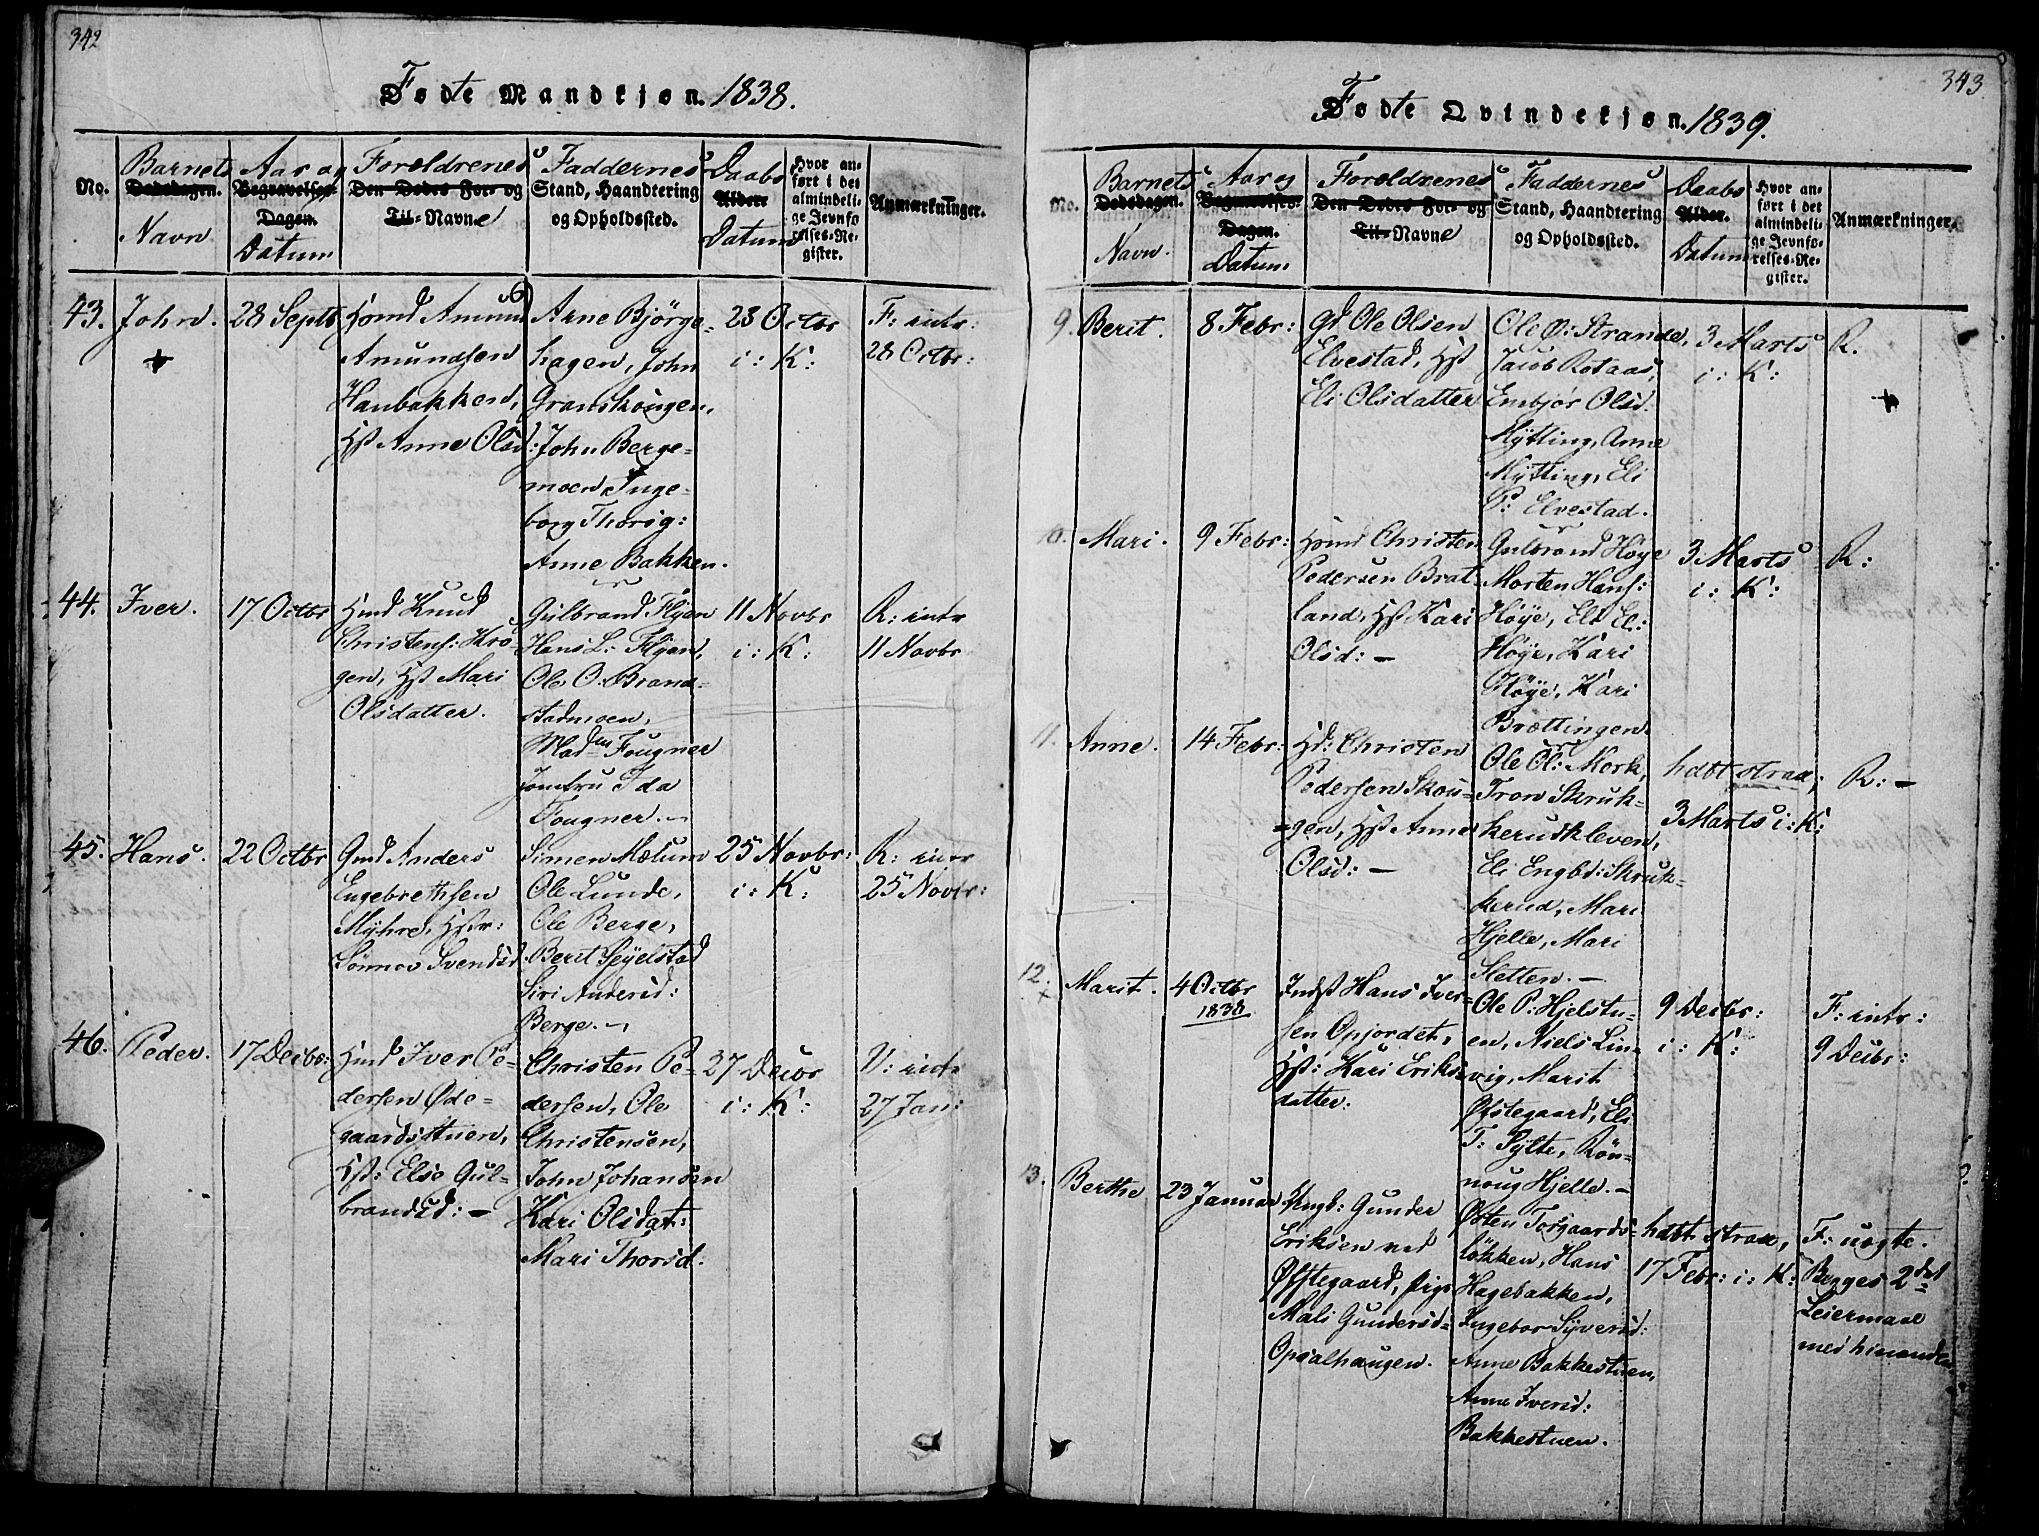 342
Fødte Mandkjøn. 1838.
No.
Barnets
Dødsdagen.
Navn
Aar og
Begravelses-
Dagen.
Datum
Forældrenes
Den Dødes For- og
Til-Navne
Faddernes
Stand, Haandtering
og Opholdssted.
Daabs
Alder.
Datum
Hvor an-
ført i det
almindeli-
ge Jevnfø-
relses-Re-
gister.
Anmærkninger.
43.
John.
28 Septb
Hmd Amund
Amundsen
Haubakken,
Hst Anne Olsd:
Arne Bjørge-
hagen, John
Granskougen,
John Berge-
moen Inge-
borg Thorsg:
Anne Bakken.
28 Octbr
i: K:
F: intr:
28 Octbr:
44.
Iver.
17 Octbr
Hmd Knud
Christens: Kro-
gen, Hst Mari
Olsdatter.
Gulbrand Flyen
Hans L: Flyen,
Ole O: Brand-
stadmoen,
Madm Fougner
Jomfru Ida
Fougner.
11 Novbr
i: K:
R: intr
11 Novbr
45.
Hans.
22 Octbr
Gmd Anders
Engebrethsen
Myhre, Hstr:
Sönnov Svendsd
Simen Mælum
Ole Lunde,
Ole Berge,
Berit Seyelstad
Siri Andersd:
Berge.
25 Novbr:
i: K:
R: intr
25 Novbr:
46.
Peder.
17 Decbr:
Hmd Iver Pe-
dersen Øde-
gaardsstuen,
Hst: Else Gul-
brandsd: —
Christen Pe-
dersen, Ole
Christensen,
John Johansen
Kari Olsdat:
Mari Thorsd.
27 Decbr
i: K:
V: intr
27 Jan:
343
Fødte Qvindekjøn. 1839.
No.
Barnets
Dødsdagen.
Navn.
Aar og
Begravelses-
Dagen.
Datum
Forældrenes
Den Dødes For- og
Til-Navne
Faddernes
Stand, Haandtering
og Opholdssted.
Daabs
Alder.
Datum
Hvor an-
ført i det
almindeli-
ge Jevnfø-
relses-Re-
gister.
Anmærkninger.
9.
Berit.
8 Febr:
Gd Ole Olsen
Elvestad, Hst
Eli Olsdatter
Ole Ø: Strande,
Jacob Rotaas,
Embjør Olsd.
Mytting, Anne
Mytting, Eli
P: Elvestad.
3 Marts
i: K:
R.
10.
Mari.
9 Febr:
Hmd Christen
Pedersen Brat-
land, Hst Kari
Olsd: —
Gulbrand Høye
Morten Hans:
Høye, Eli El:
Høye, Kari
Høye, Kari
Brættingen
3 Marts
i: K:
R:
11.
Anne.
14 Febr:
Hd: Christen
Pedersen Skou-
gen, Hst Anne
Olsd: —
Ole Ol: Mork,
Tron Skruk-
kerudkleven,
Eli Engbd: Skruk-
kerud, Mari
Hjelle, Mari
Sletten. —
hdbt strax,
3 Marts i: K:
R: —
12.
Marit.
4 Octbr
1838
Indst Hans Iver-
sen Opjordet,
Hst: Kari Eriks-
datter:
Ole P: Hjelstu-
en, Niels Lin-
vig, Marit
Øfstegaard, Eli
T: Sylte, Rön-
noug Hjelle. —
9 Decbr:
i: K:
F: intr:
9 Decbr:
13.
Berthe
23 Januar
Ungk: Gunder
Eriksen ved
Øfstegaard, pige
Mali Gundersd-
Opsalhaugen.
Østen Torgaards-
løkken, Hans
Hagebakken,
Ingebor Syversd:
Anne Bakkestuen,
Anne Iversd:
Bakkestuen.
hdbt strax,
17 Febr: i: K:
F: uægte.
Begges 2det
Leiermaal
med hinanden